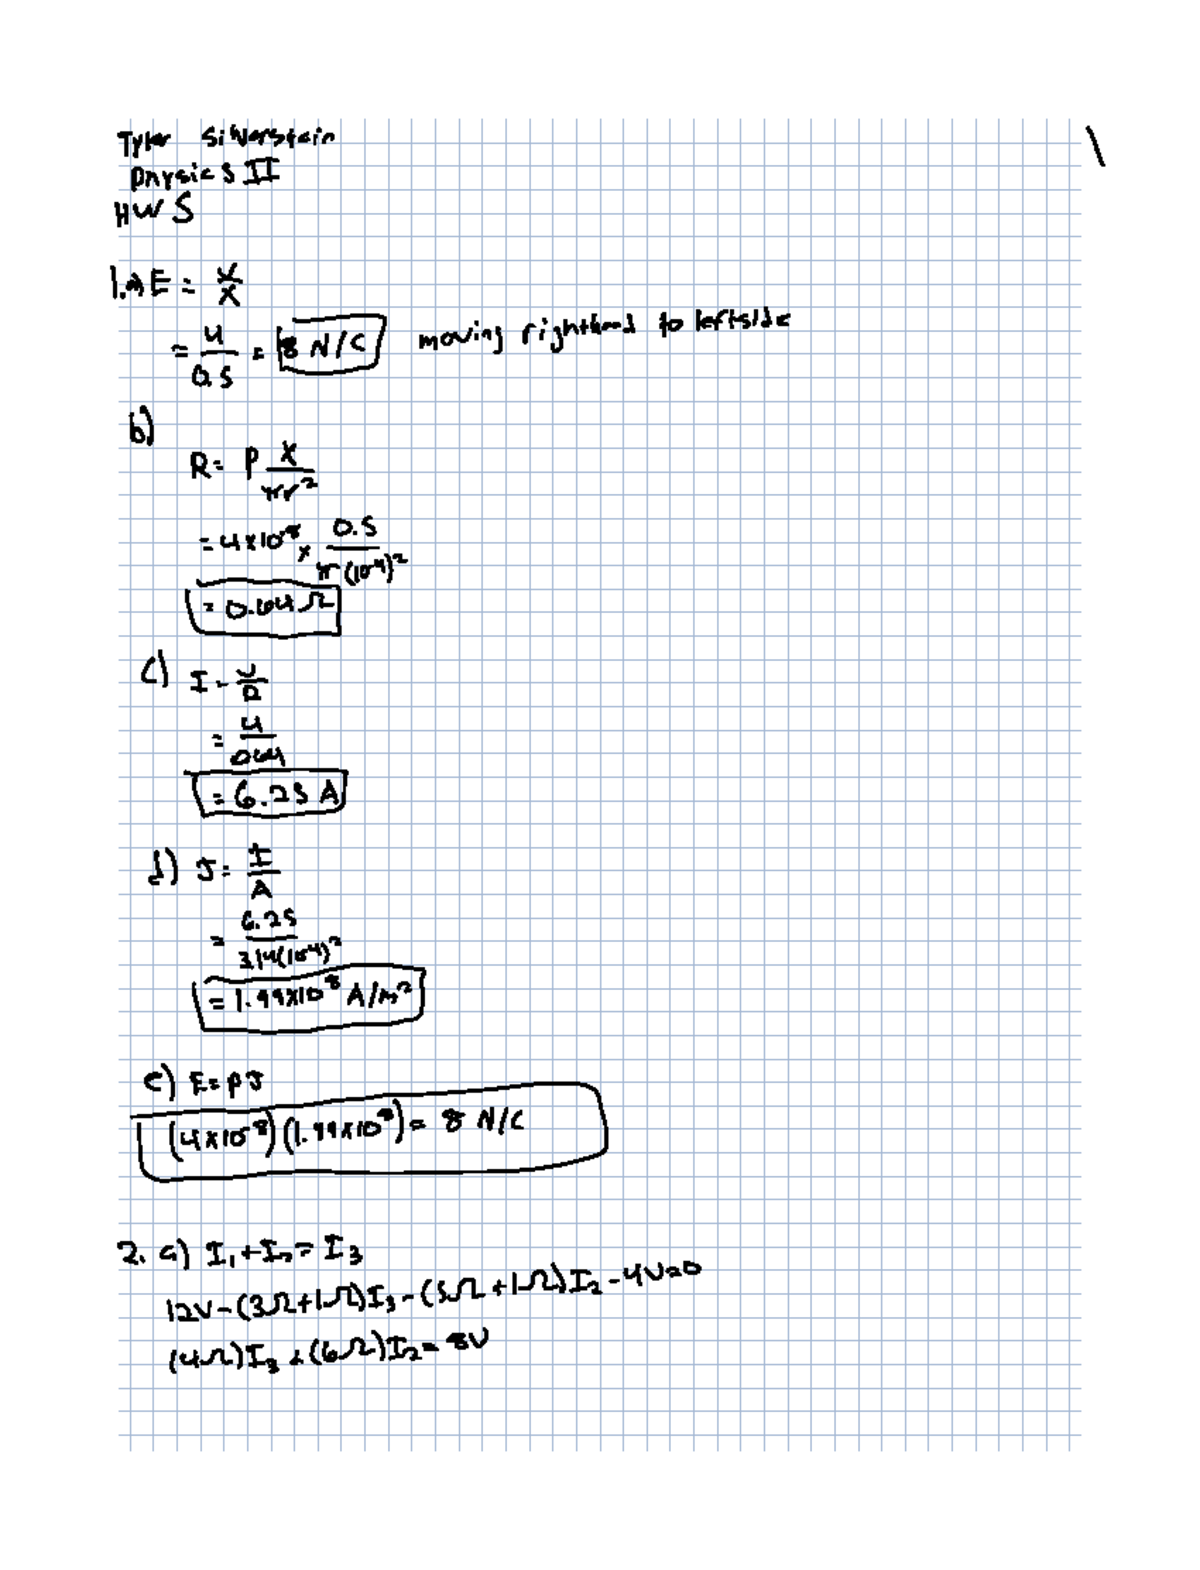 Tyler Silverstein
Physics II
HW 5
1. a) E = V/X
= 4/0.5 = 8 N/C moving righthand to leftside
b)
R = ρ X/πr²
= 4×10⁻⁸ × 0.5/π(10⁻⁴)²
= 0.64 Ω
c) I = V/R
= 4/0.64
= 6.25 A
d) J = I/A
= 6.25/3.14(10⁻⁴)²
= 1.99×10⁸ A/m²
e) E = ρJ
(4×10⁻⁸)(1.99×10⁸) = 8 N/C
2. a) I₁+I₂ = I₃
12V-(3Ω+1Ω)I₃-(5Ω+1Ω)I₂-4V=0
(4Ω)I₃+(6Ω)I₂=8V